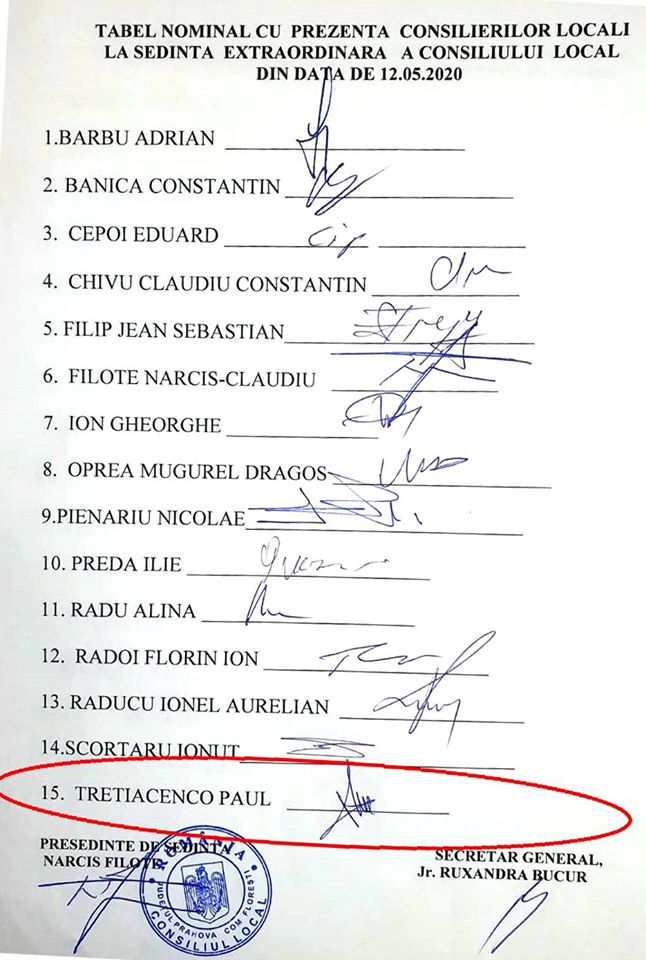 TABEL NOMINAL CU PREZENTA CONSILIERILOR LOCALI
LA SEDINTA EXTRAORDINARA A CONSILIULUI LOCAL
DIN DATA DE 12.05.2020
1.BARBU ADRIAN
2. BANICA CONSTANTIN
3. CEPOI EDUARD
4. CHIVU CLAUDIU CONSTANTIN
5. FILIP JEAN SEBASTIAN
6. FILOTE NARCIS-CLAUDIU
7. ION GHEORGHE
8. OPREA MUGUREL DRAGOS
9.PIENARIU NICOLAE
10. PREDA ILIE
11. RADU ALINA
12. RADOI FLORIN ION
13. RADUCU IONEL AURELIAN
14.SCORTARU IONUT
15. TRETIACENCO PAUL
PRESEDINTE DE SEDINTA
NARCIS FILOTE
ROMÂNIA
JUDEŢUL PRAHOVA COM FLOREŞTI
CONSILIUL LOCAL
SECRETAR GENERAL,
Jr. RUXANDRA BUCUR